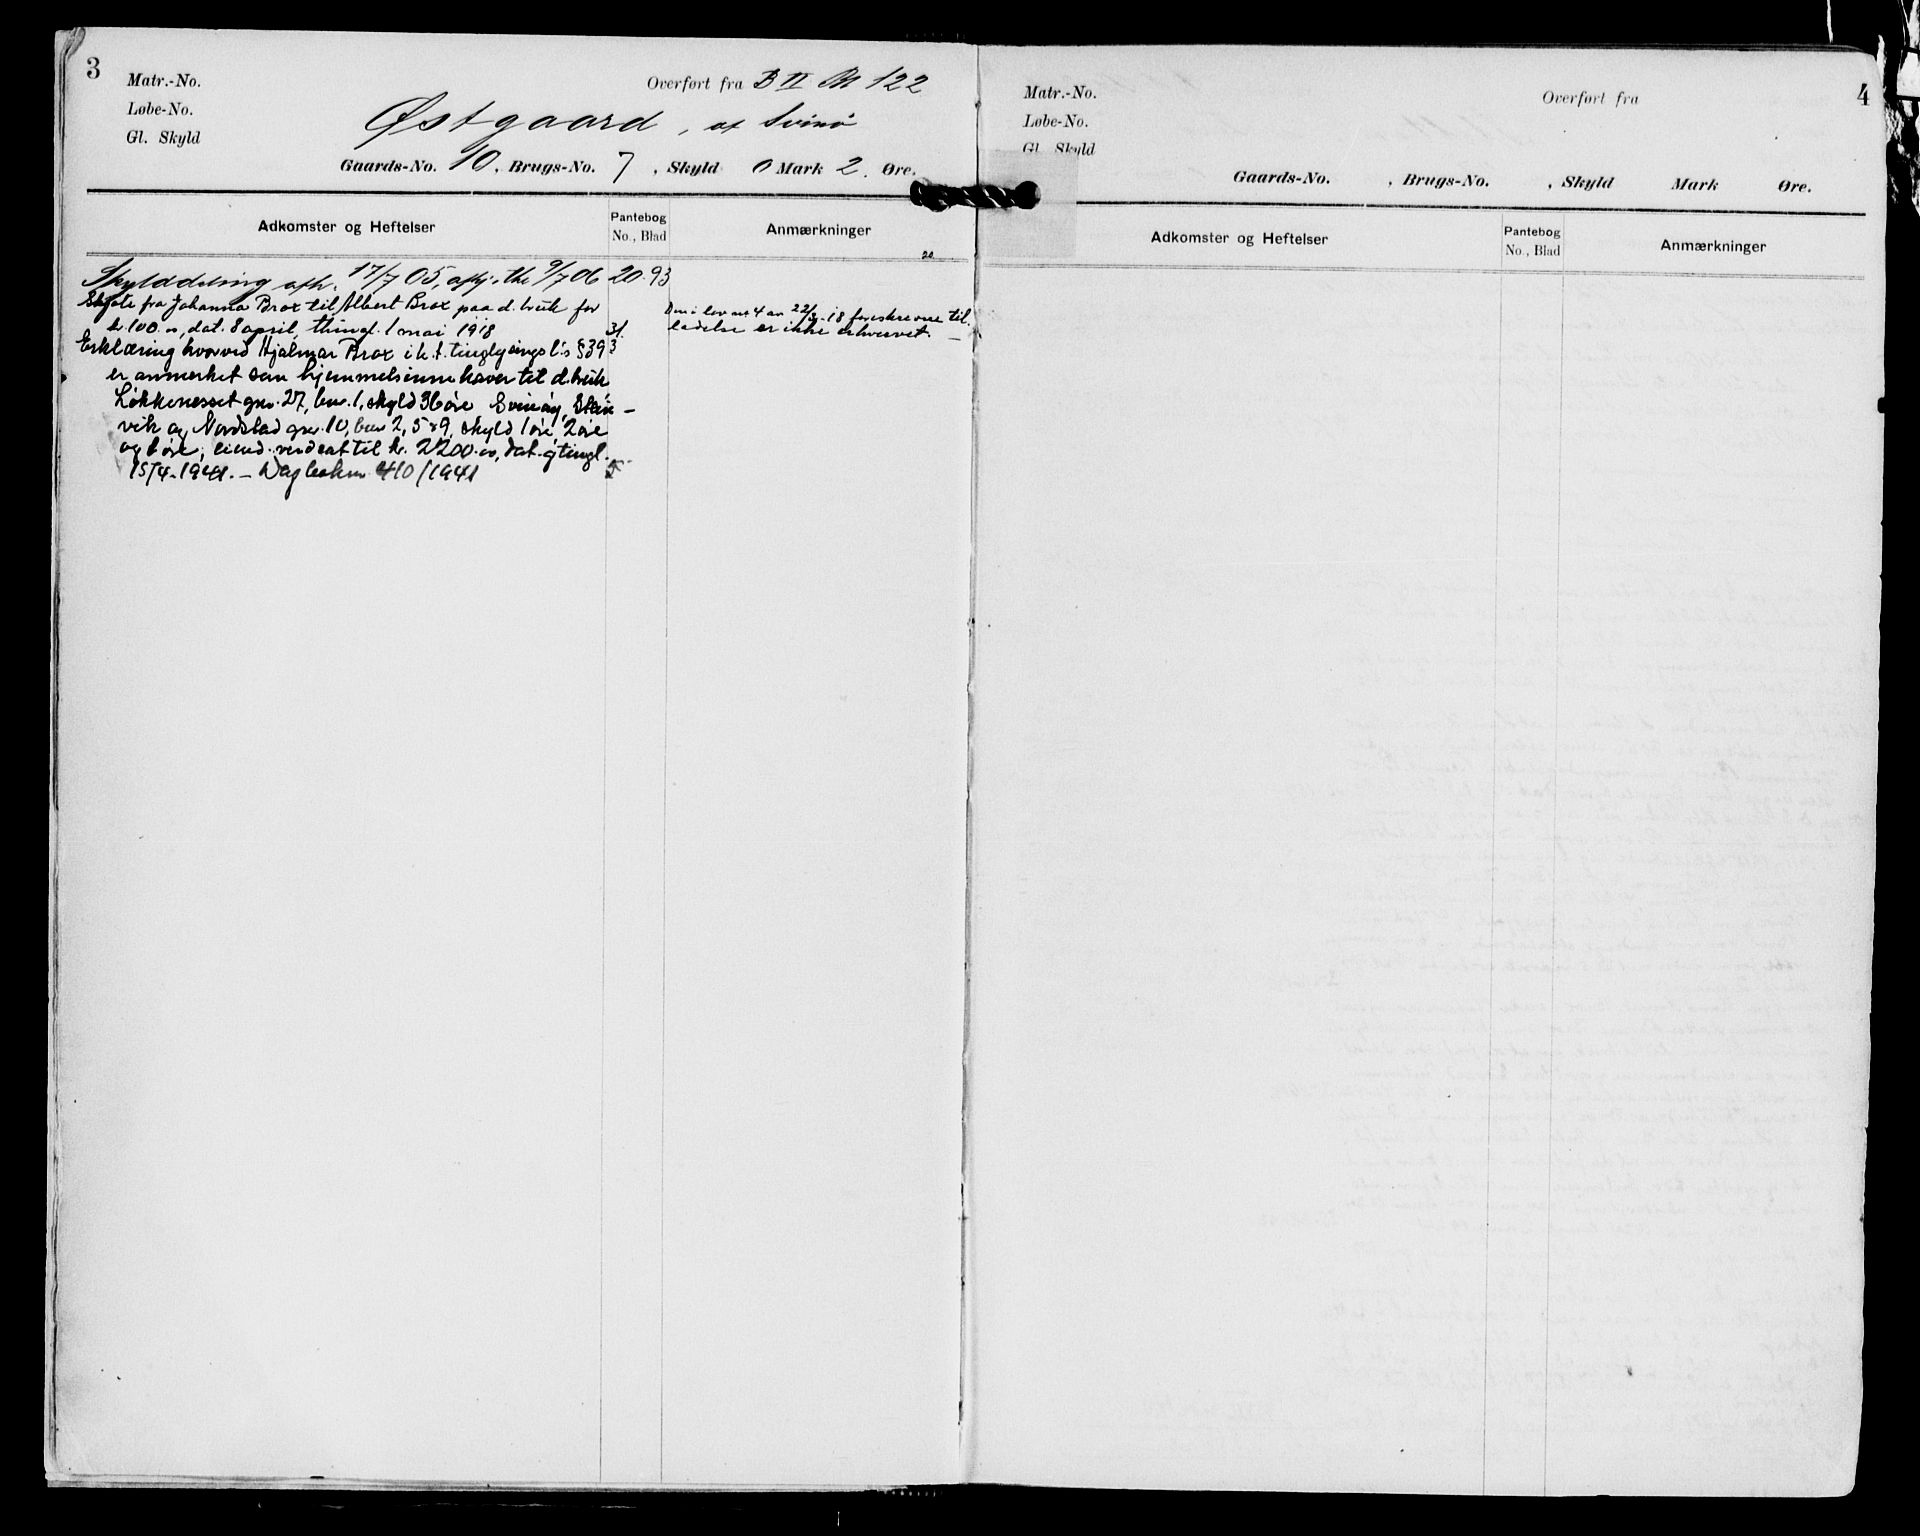 3
Matr.-No.
Overført fra B II Bl 122
Løbe-No.
Østgaard, af Svinø
Gl. Skyld
Gaards-No. 10, Brugs-No. 7, Skyld 0 Mark 2. Øre.
Adkomster og Heftelser
Pantebog
No., Blad
Anmærkninger
Skylddeling afh. 17/7 05, afhj. the 9/7 06 20.93
Skjøte fra Johanna Brox til Albert Brox paa d. bruk for
kr. 100.00, dat. 8 april, thingl. 1 mai 1918
Erklæring hvorved Hjalmar Brox i h.t. tinglysingsl.s § 39
er anmerket som hjemmelsinnehaver til d. bruk
Løkkenesset gnr. 27, bnr. 1, skyld 36 øre Svinøy, Stein-
vik og Nordstad gnr. 10, bnr 2, 5 & 9, skyld 1 øre, 2 øre
og 6 øre, eiend. verdsat til kr. 2200.00, dat. & tingl.
15/4-1941. – Dagboknr 410/1941
Den i lov nr 4 av 22/3-18 foreskrevne til-
ladelse er ikke erhvervet.
4
Matr.-No.
Overført fra
Løbe-No.
Gl. Skyld
Gaards-No. , Brugs-No. , Skyld Mark Øre.
Adkomster og Heftelser
Pantebog
No., Blad
Anmærkninger